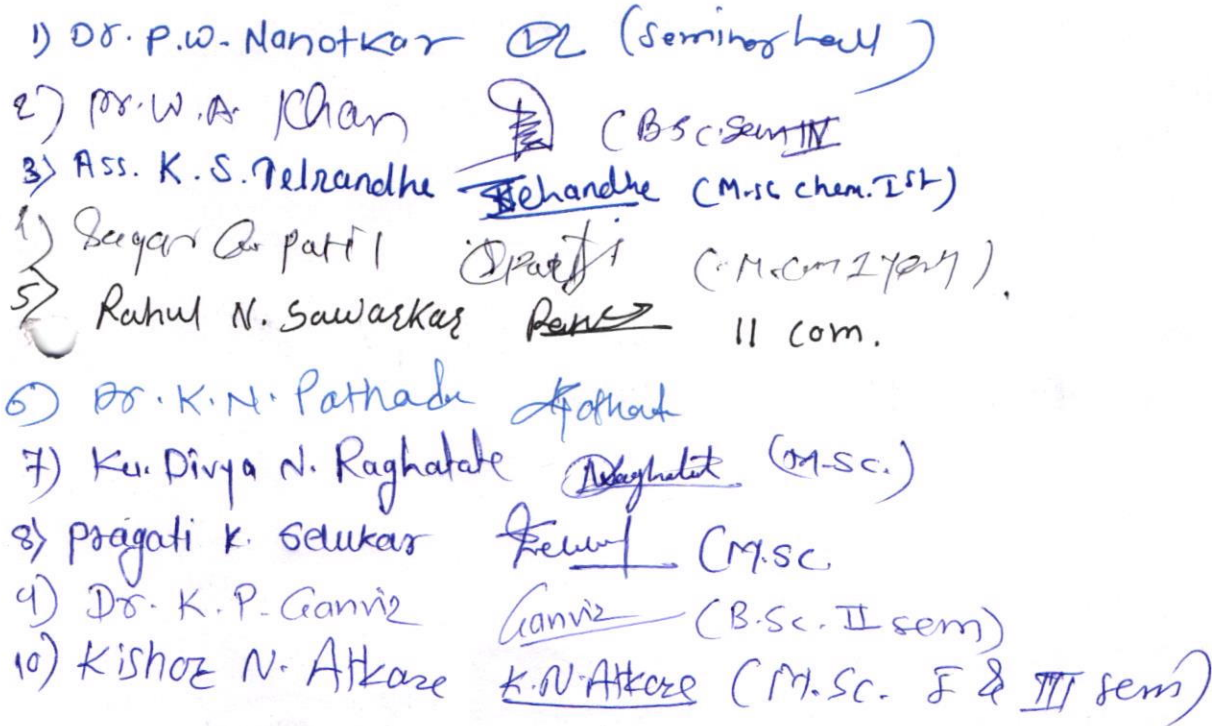 1) Dr. P.W. Nanotkar (Seminor hall)
2) Dr. W.A. Khan (B.Sc. Sem IV
3) Ass. K. S. Telrandhe Telrandhe (M.sc chem. Ist)
4) Sagar G. patil Spatil (M.com 1 year)
5) Rahul N. Sawarkar II com.
6) Dr. K.N. Pathade
7) Ku. Divya N. Raghatate Raghatate (M.SC.)
8) Pragati K. Selukar (M.SC
9) Dr. K. P. Ganvir Ganvir (B.Sc. II sem)
10) Kishor N. Atkare K.N. Atkare (M.Sc. I & III sem)